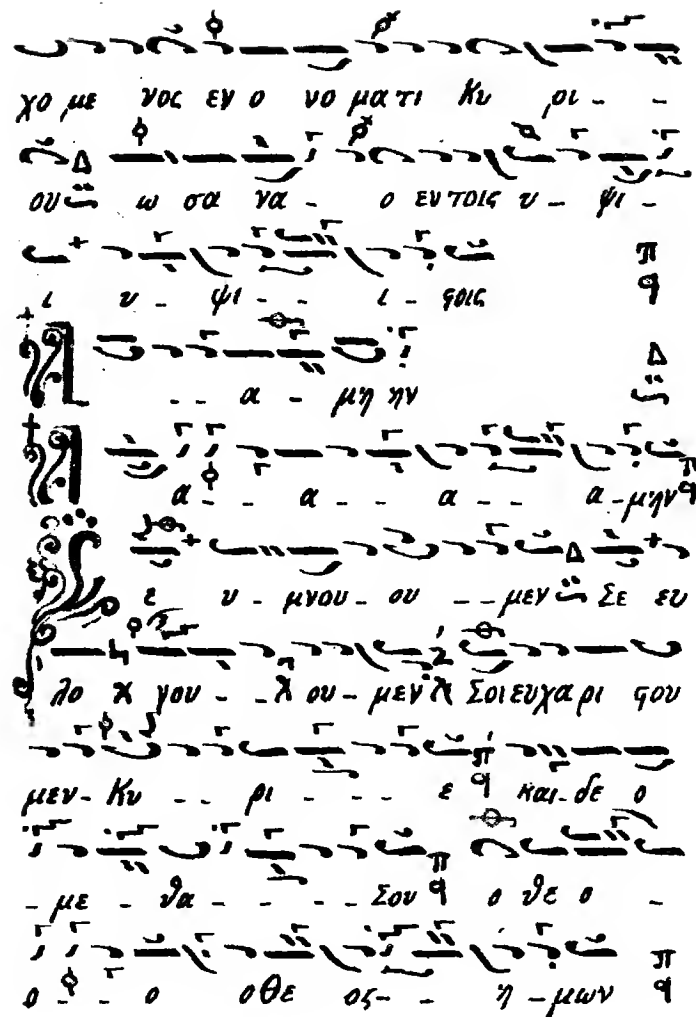 χο με νος εν ο νο μα τι Κυ ρι - -
ου Δ ω σα να - ο εν τοις υ - ψι -
ι υ - ψι - - - ι - ϛοις π q
- - α - μη ην Δ
α - - - α - - - α - - α - μην π q
ε υ - μνου - ου - - μεν Δ Σε ευ
λο γου - - ου - μεν Σοι ευχαρι ϛου
μεν - Κυ - - ρι - - - - ε π q και - δε ο
- με - θα - - - - Σου π q ο θε ο -
ο - - ο ο θε ος - - η - μων π q